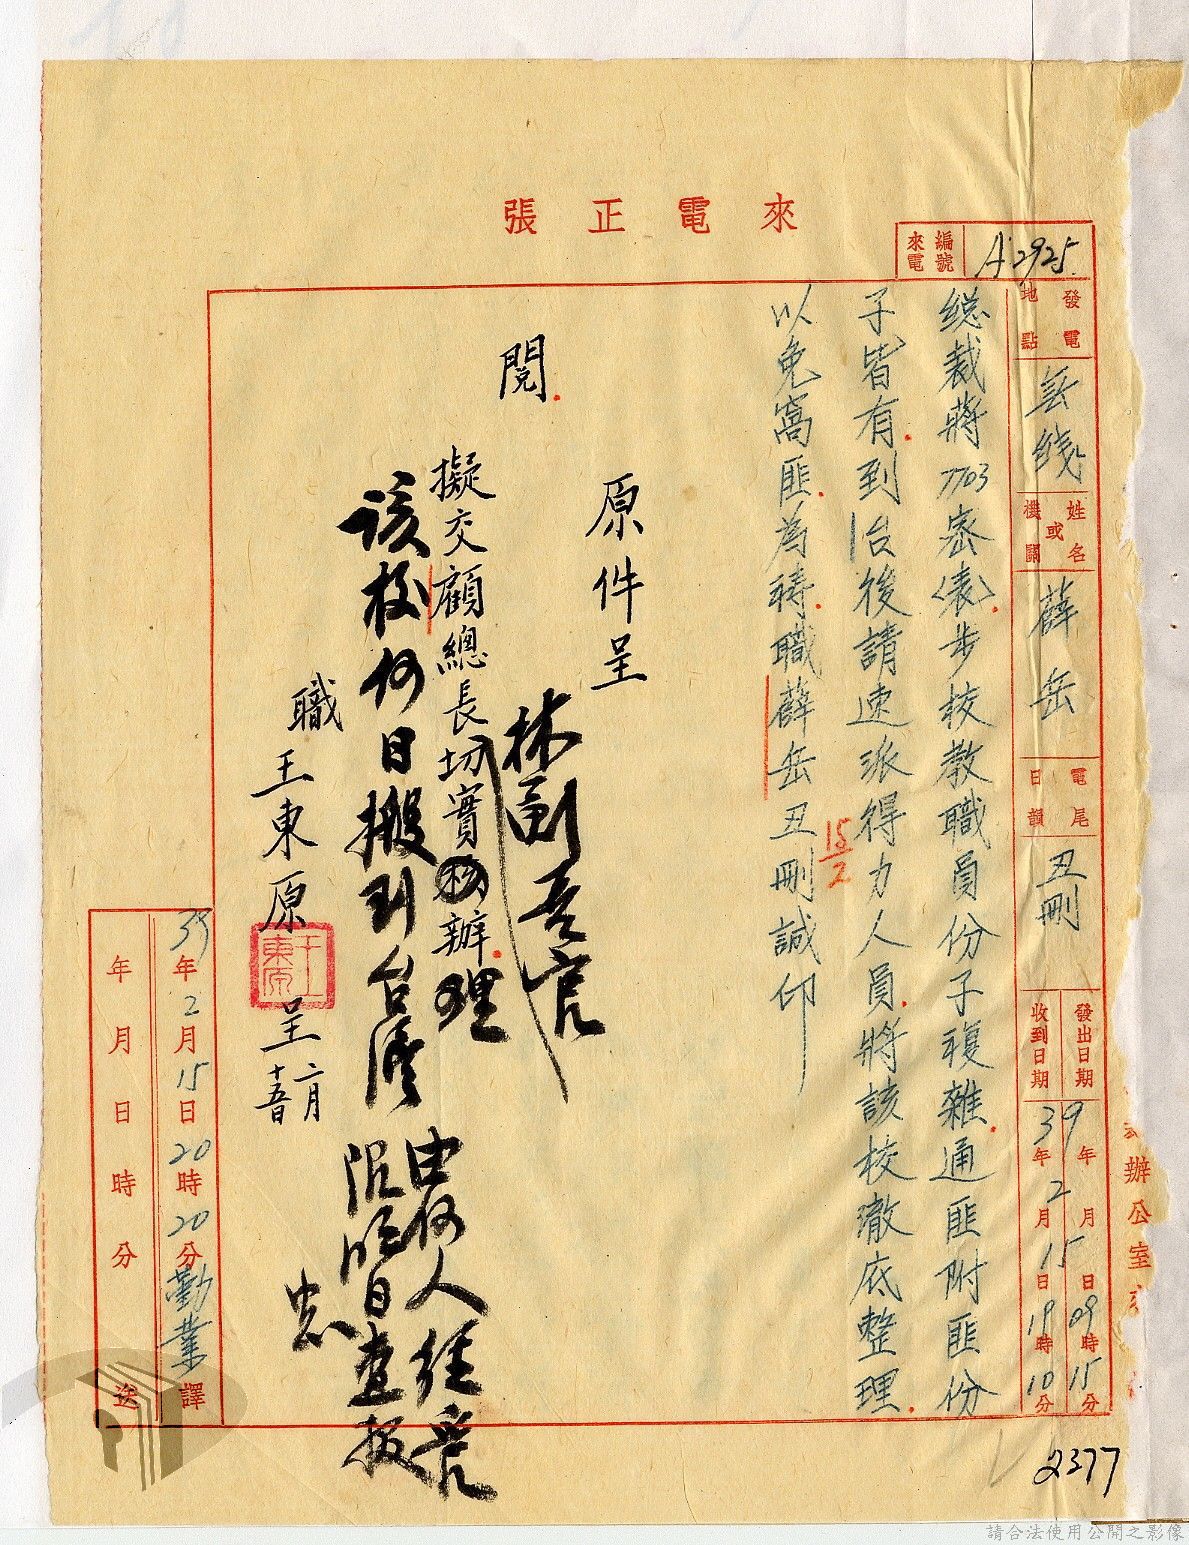 來電正張
來電編號
A2925.
發電地點
無线
姓名或機關
薛岳
電尾日韻
丑刪
發出日期
39年2月15日09時15分
收到日期
年2月15日19時10分
總裁蔣7703密〈表〉步校教職員份子複雜通匪附匪份
子皆有到台後請速派得力人員將該校澈底整理
以免窩匪為禱職薛岳丑刪誠印
15/2
原件呈
閱
林副官
擬交顧總長切實核辦
職王東原呈二月十五日
王東原
該校何日搬到台灣
由何人經
限明日查報
39年2月15日20時20分勤業譯
年月日時分送
辦公室
2377
請合法使用公開之影像